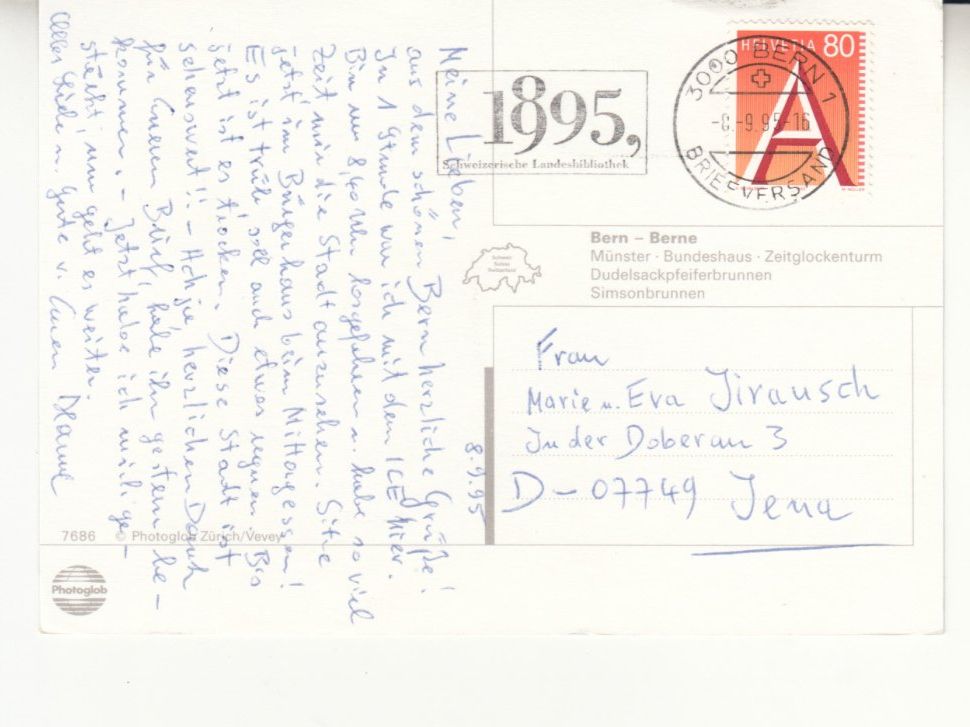 HELVETIA 80
3000 BERN 1
-8.-9.95-16
BRIEFVERSAND
1895,
Schweizerische Landesbibliothek
Schweiz
Suisse
Switzerland
Bern – Berne
Münster · Bundeshaus · Zeitglockenturm
Dudelsackpfeiferbrunnen
Simsonbrunnen
8.9.95
Meine Lieben,
aus dem schönen Bern herzliche Grüße!
In 1 Stunde war ich mit dem ICE hier.
Bin um 8,40 Uhr losgefahren u. habe so viel
Zeit mir die Stadt anzusehen. Sitze
jetzt im Bürgerhaus beim Mittagessen!
Es ist trüb, soll auch etwas regnen. Bis
jetzt ist es trocken. Diese Stadt ist
sehenswert!! – Ach je, herzlichen Dank
für Euern Brief, habe ihn gestern be-
kommen. – Jetzt habe ich
nun geht es weiter.
Alles Liebe u. Gute v. Euern
Frau
Marie u. Eva Jirausch
In der Doberau 3
D – 07749 Jena
7686 © Photoglob Zürich/Vevey
Photoglob